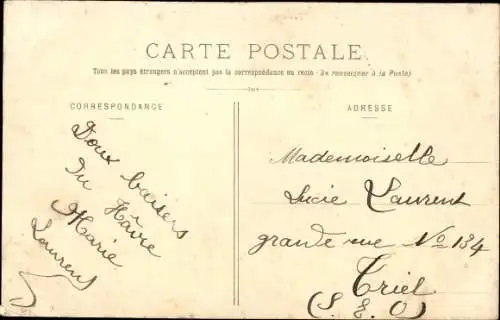 CARTE POSTALE
Tous les pays étrangers n'acceptent pas la correspondance au recto (Se renseigner à la Poste)
CORRESPONDANCE
Doux baisers
du Hâvre
Marie
Laurent
ADRESSE
Mademoiselle
Lucie Laurent
grande rue No 134
Triel
(S. E. O)